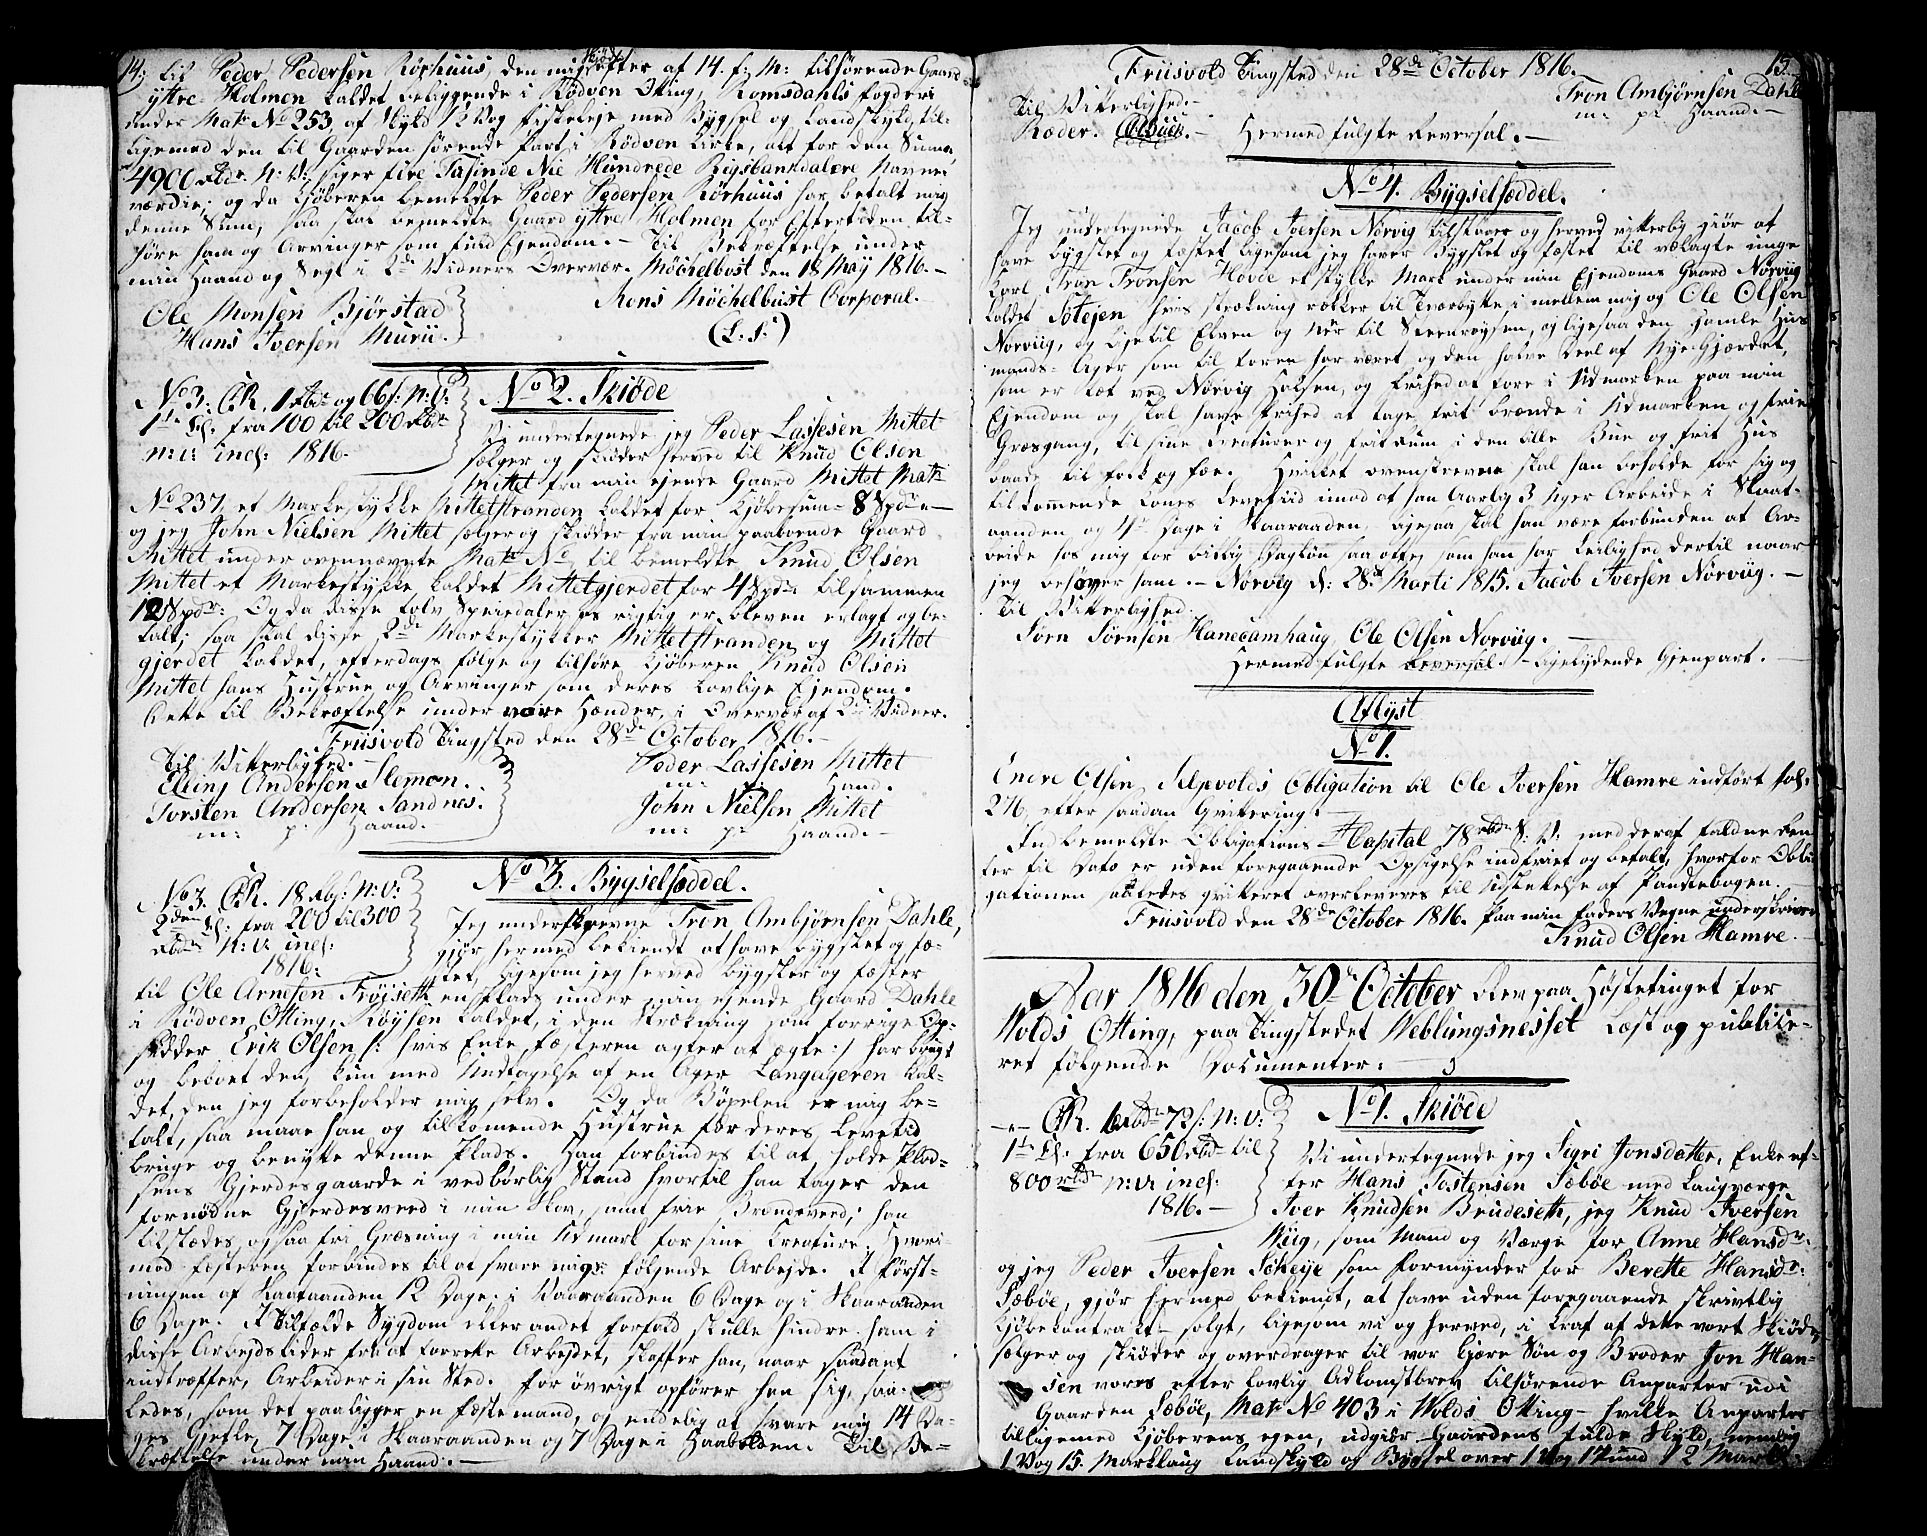 14.
til Peder Pedersen Rørhuus, den mig efter Skiøde af 14. f: M: tilhørende Gaard
yttre Holmen kaldet beliggende i Rödven Otting, Romsdahls fogderi
under Matr No 253, af Skyld 2 Vog fiskeleje med Bygsel og Landskyld, til-
ligemed den til Gaarden hørende Part i Rödven Kirke, alt for den Summa
4900 Rbdr. N: V: siger fire Tusinde Nie Hundrede Rigsbankdalere Navne-
værdie; og da Kjøberen bemeldte Peder Pedersen Rörhuus har betalt mig
denne Sum, saa skal bemeldte Gaard yttre Holmen for Eftertiden til-
höre ham og Arvinger som fuld Ejendom. – Til Bekræftelse under
min Haand og Segl i 2de Vidners Overvær. Möchelbost den 18 May 1816. –
Ole Monsen Bjørstad
Mons Möchelbust Corporal. –
Hans Iversen Murii.
(L: S:)
No 3: CR. 1 Rbdr og 66 s: N: V:
1te Cl: fra 100 til 200 Rbdr
n: v: incl: 1816.
No 2. Skiøde
Vi undertegnede jeg Peder Lassesen Mittet
sælger og skiöder herved til Knud Olsen
Mittet fra min ejende Gaard Mittet Matr
No 237, et Markestykke Mittetstranden kaldet for Kjøbesum 8 Spdr –
og jeg John Nielsen Mittet sælger og skiøder fra min paaboende Gaard
Mittet under ovennævnte Matr No til bemeldte Knud Olsen
Mittet et Markestykke kaldet Mittetgjerdet for 4 Spdr tilsammen
12 Spdr: Og da disse tolv Speciedaler os rigtig er bleven erlagt og be-
talt; saa skal disse 2de Markestykker Mittetstranden og Mittet
gjerdet kaldet, efterdags følge og tilhöre Kjøberen Knud Olsen
Mittet hans Hustrue og Arvinger som deres lovlige Ejendom.
Dette til Bekræftelse under vore Hænder, i Overvær af 2de Vidner.
Friisvold Tingsted den 28de October 1816. –
Til Vitterlighed. –
Peder Lassesen Mittet
Elling Andersen Slemon.
m: p: Haand.
Torsten Andersen Sandnes.
John Nielsen Mittet
m: p: Haand.
m: p: Haand. –
No 3. CR. 18 Rbs: N: V:
2den Cl: fra 200 til 300
Rbdr N: V: incl:
1816:
No 3. Bygselseddel.
Jeg underskrevne Tron Ambjørnsen Dahle,
gjør hermed bekiendt at have bygslet og fæ-
stet, ligesom jeg herved bygsler og fæster
til Ole Arnesen Tröjseth en Plads under min ejende Gaard Dahle
i Rödven Otting, Röysen kaldet, i den Strækning som forrige Op-
sidder Erik Olsen /: hvis Enke fæsteren agter at ægte :/ har brugt
og beboet den, kun med Undtagelse af en Ager Langageren kal-
det, den jeg forbeholder mig selv. Og da Böxelen er mig be-
talt, saa maae han og tilkomende Hustrue for deres Levetid
bruge og benytte denne Plads. Han forbindes til at holde Plad-
sens Gjerdesgaarde i vedbörlig Stand hvortil han tager den
fornödne Gjerdesveed i min Skov, samt frie Brændeveed; han
tilstædes ogsaa fri Græsning i min Udmark for sine Creature. Hvori-
mod fæsteren forbindes til at svare mig følgende Arbejde. I Først-
ningen af Slaataanden 12 Dage: i Vaaraanden 6 Dage og i Skuraanden
6 Dage. I Tilfælde Sygdom eller andet forfald skulle hindre ham i
disse Arbejdstider fra at forrette Arbejdet, skaffer han, naar saadant
indtræffer, Arbeider i sin Sted. For øvrigt opfører han sig, saa-
ledes, som det paaligger en fæstemand, og endelig at svare mig 14 Da-
ges Giefle 7 Dage i Skaaraanden og 7 Dage i Haabolden. Til Be-
kræftelse under min Haand. –
15.
Friisvold Tingsted den 28de October 1816.
Tron Ambjørnsen Dahle
Til Vitterlighed. –
m: p: Haand. –
Ræder.
Hermed fulgte Reversal. –
No 4. Bygselseddel.
Jeg undertegnede Jacob Iversen Norvig tilstaaer og herved vitterlig giör at
have bygslet og fæstet ligesom jeg haver Bygslet og fæstet til velagte unge
Karl Tron Tronsen Hovde et stykke Mark under min Ejendoms Gaard Norviig
kaldet Sötejen hvis strækning rækker til Tverbytte i mellem mig og Ole Olsen
Norviig, og lige til Elven og Nër til Steenröysen, og ligesaa den gamle Hus
mands-Ager som til foren har været og den halve Deel af Nye-Gjærdet,
som er tæt ved Nörvig Halsen, og Frihed at fore i Udmarken paa min
Ejendom og skal have frihed at tage frit brænde i Udmarken og frie
Græsgang, til sine Creaturer og frit Rum i den lille Bue og frit Hus
baade til folk og fæe. Hvilket ovenskrevne skal han beholde for sig og
tilkommende Kones Levetiid imod at han Aarlig 3 Uger Arbeide i Slaat-
aanden, og 4re Dage i Skaaraanden, ligesaa skal han være forbunden at Ar-
beide hos mig for billig Dagløn saa ofte, som han har Leilighed dertil naar
jeg behøver ham. – Norvig d: 28de Marti 1815. Jacob Iversen Norviig. –
Til Vitterlighed.
Sörn Sörnsen Hanecamhaug, Ole Olsen Norviig. –
Hermed fulgte Reversal. – ligelydende Gjenpart. –
Aflyst
No 1.
Endre Olsen Selpvolds Obligation til Ole Iversen Hamre indført fol:
276, efter saadan Qvittering. –
Indbemeldte Obligations Kapital 78 rbdr S: V: med deraf faldne Ren
ter til Dato er uden foregaaende Opsigelse indfriet og betalt, hvorfor Obli
gationen saaledes qvitteret overleveres til Udslettelse af Pandtebogen.
Friisvold den 28de October 1816. Paa min Faders Vegne underskriver
Knud Olsen Hamre.
Aar 1816 den 30te October blev paa Höstetinget for
Wolds Otting, paa Tingstedet Weblungsnesset læst og publice-
ret følgende Documenter: –
CR. 1 Rbdr 72 s: N: V:
1te Cl: fra 650 Rbdr til
800 rbdr n: v: incl:
1816. –
No 1. Skiöde
Vi undertegnede jeg Sigri Jonsdatter, Enke ef-
ter Hans Tostensen Sæböe med Laugværge
Iver Knudsen Brudeseth, jeg Knud Iversen
Myg, som Mand og Værge for Anne Hansdr.
og jeg Peder Iversen Sökeye som Formynder for Berette Hansdr.
Sæböe, gjør hermed bekiendt, at have uden foregaaende skrivtlig
Kjøbekontrakt solgt, ligesom vi og herved, i Kraf af dette vort Skiöde
sælger og skiøder og overdrager til vor kjære Søn og Broder Jon Han-
sen vores efter lovlig Adkomstbrev tilhörende Anparter udi
Gaarden Sæböe, Matr No 403 i Wolds Otting – hvilke Anparter
tilligemed Kjøberens egen, udgiör Gaardens fulde Skyld, nemlig
1 Vog 15 Marklaug Landskyld og Bygsel over 1 Vog 1 Pund 12 Mark: